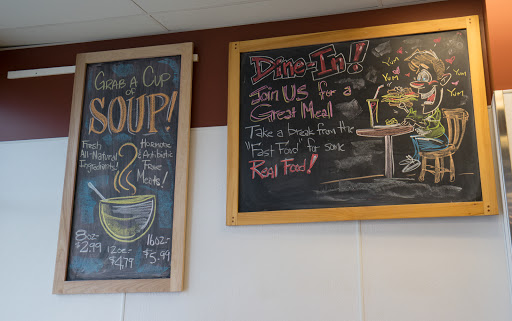 GRAB A CUP
OF
SOUP!
Fresh
All-Natural
Ingredients!
Hormone
& Antibiotic
Free
Meats!
8oz-
$2.99
12oz-
$4.79
16oz-
$5.99
Dine-In!
Join Us for a
Great Meal
Take a break from the
"Fast Food" for some
Real Food!
Yum
Yum
Yum
Yum